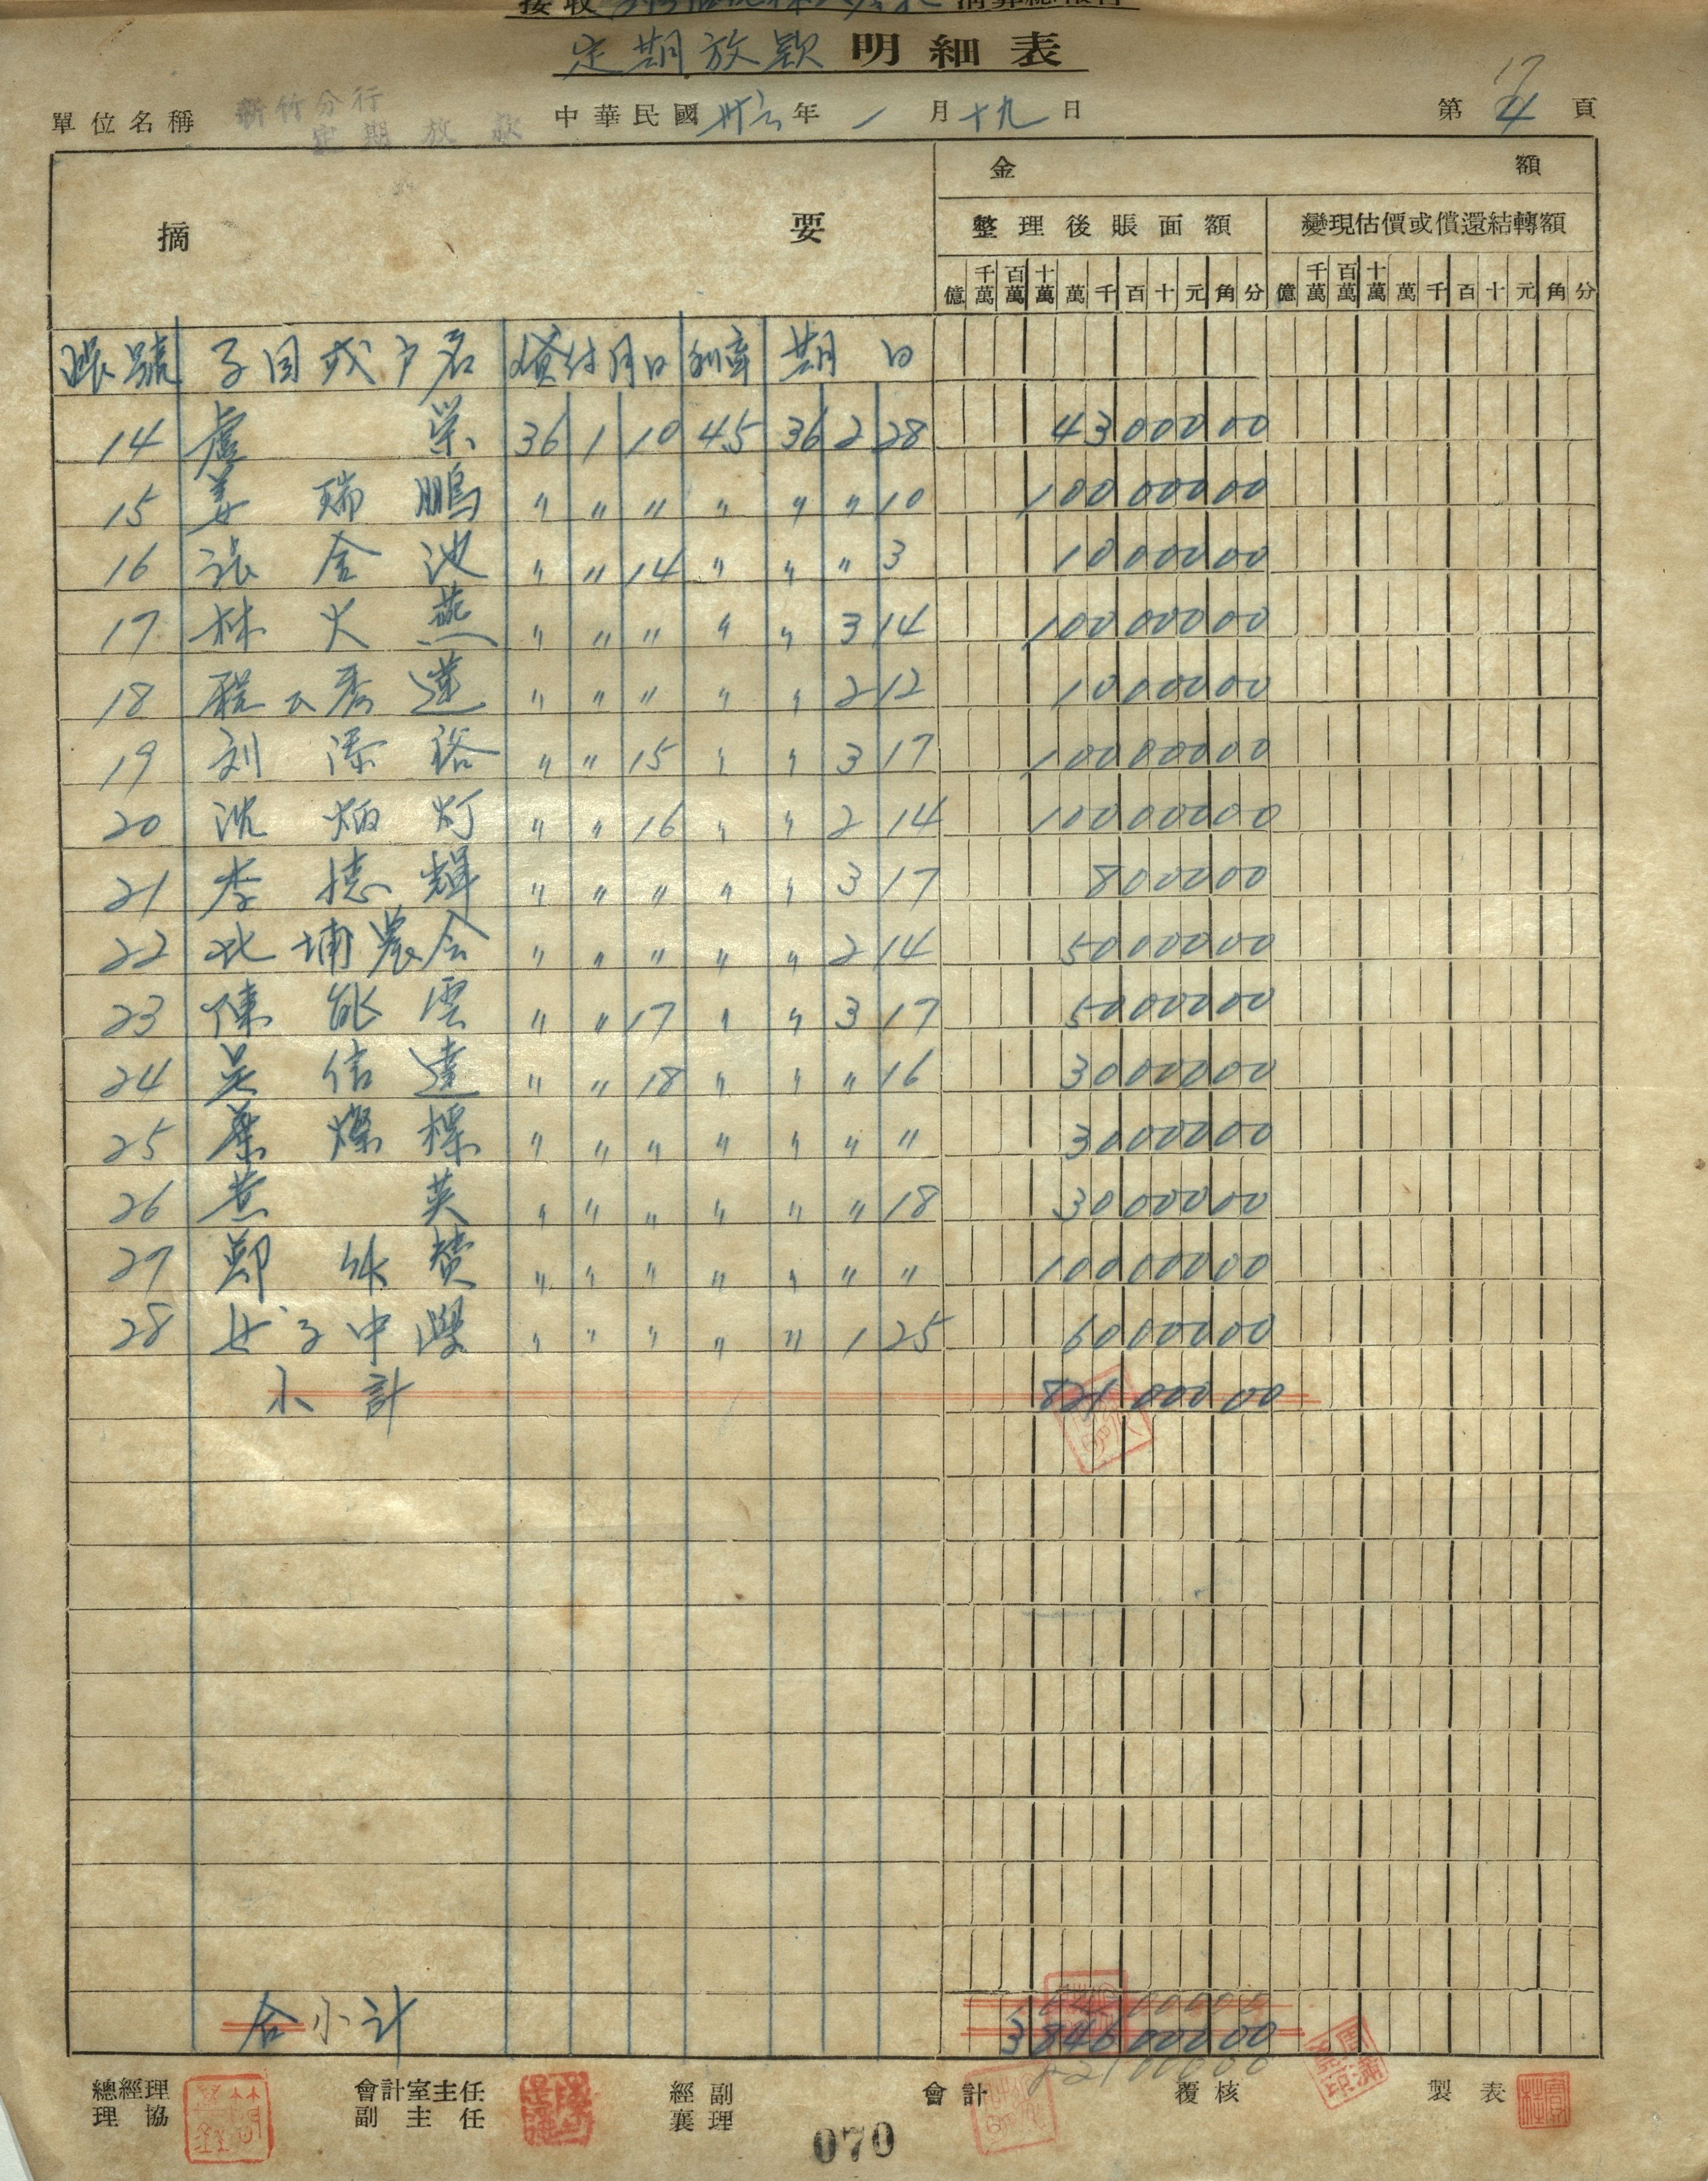 定期放款明細表
單位名稱 新竹分行 定期放款 中華民國卅六年一月十九日 第4頁
17
摘要 金額
整理後賬面額 變現估價或償還結轉額
億 千萬 百萬 十萬 萬 千 百 十 元 角 分 億 千萬 百萬 十萬 萬 千 百 十 元 角 分
賬號 子目或戶名 貸付月日 利率 期日
14 盧 榮 36 1 10 45 36 2 28 4300000
15 姜瑞鵬 〃 〃 〃 〃 〃 〃 10 10000000
16 張金池 〃 〃 14 〃 〃 〃 3 1000000
17 林火燕 〃 〃 〃 〃 〃 3 14 10000000
18 程氏秀蓮 〃 〃 〃 〃 〃 2 12 1000000
19 刘添裕 〃 〃 15 〃 〃 3 17 10000000
20 沈炳灯 〃 〃 16 〃 〃 2 14 10000000
21 李德輝 〃 〃 〃 〃 〃 3 17 800000
22 北埔農会 〃 〃 〃 〃 〃 2 14 5000000
23 陳能雲 〃 〃 17 〃 〃 3 17 5000000
24 吴信達 〃 〃 18 〃 〃 〃 16 3000000
25 葉燦標 〃 〃 〃 〃 〃 〃 〃 3000000
26 黄 英 〃 〃 〃 〃 〃 〃 18 3000000
27 鄭 贊 〃 〃 〃 〃 〃 〃 〃 10000000
28 女子中學 〃 〃 〃 〃 〃 1 25 6000000
小計 82100000
合小計 384600000
82100000
總經理 會計室主任 經副 會計 覆核 製表
理協 副主任 襄理
070